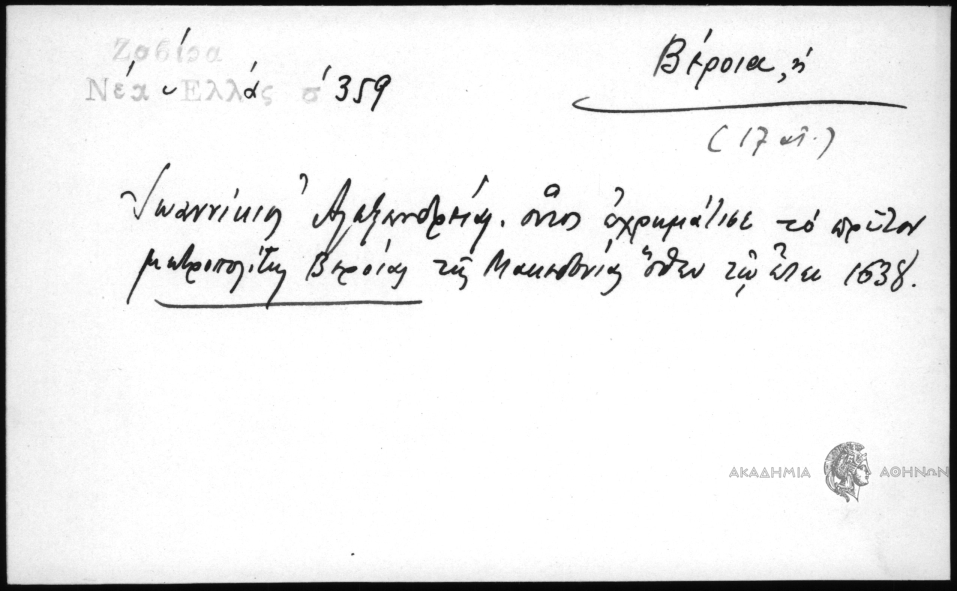 Ζαβίρα
Νέα Ἑλλάς σ 359
Βέροια, ἡ
(17 αἰ.)
Ἰωαννίκιος Ἀλεξανδρείας. οὗτος ἐχρημάτισε τὸ πρῶτον
μητροπολίτης Βεροίας τῆς Μακεδονίας ὅθεν τῷ ἔτει 1638.
ΑΚΑΔΗΜΙΑ ΑΘΗΝΩΝ